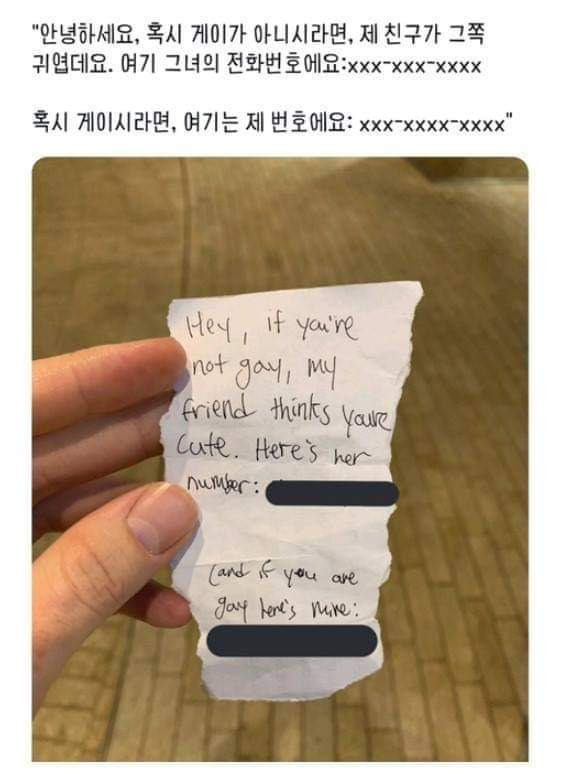 "안녕하세요, 혹시 게이가 아니시라면, 제 친구가 그쪽
귀엽데요. 여기 그녀의 전화번호에요:xxx-xxx-xxxx
혹시 게이시라면, 여기는 제 번호에요: xxx-xxxx-xxxx"
Hey, if you're
not gay, my
friend thinks youre
cute. Here's her
number:
(and if you are
gay here's mine: